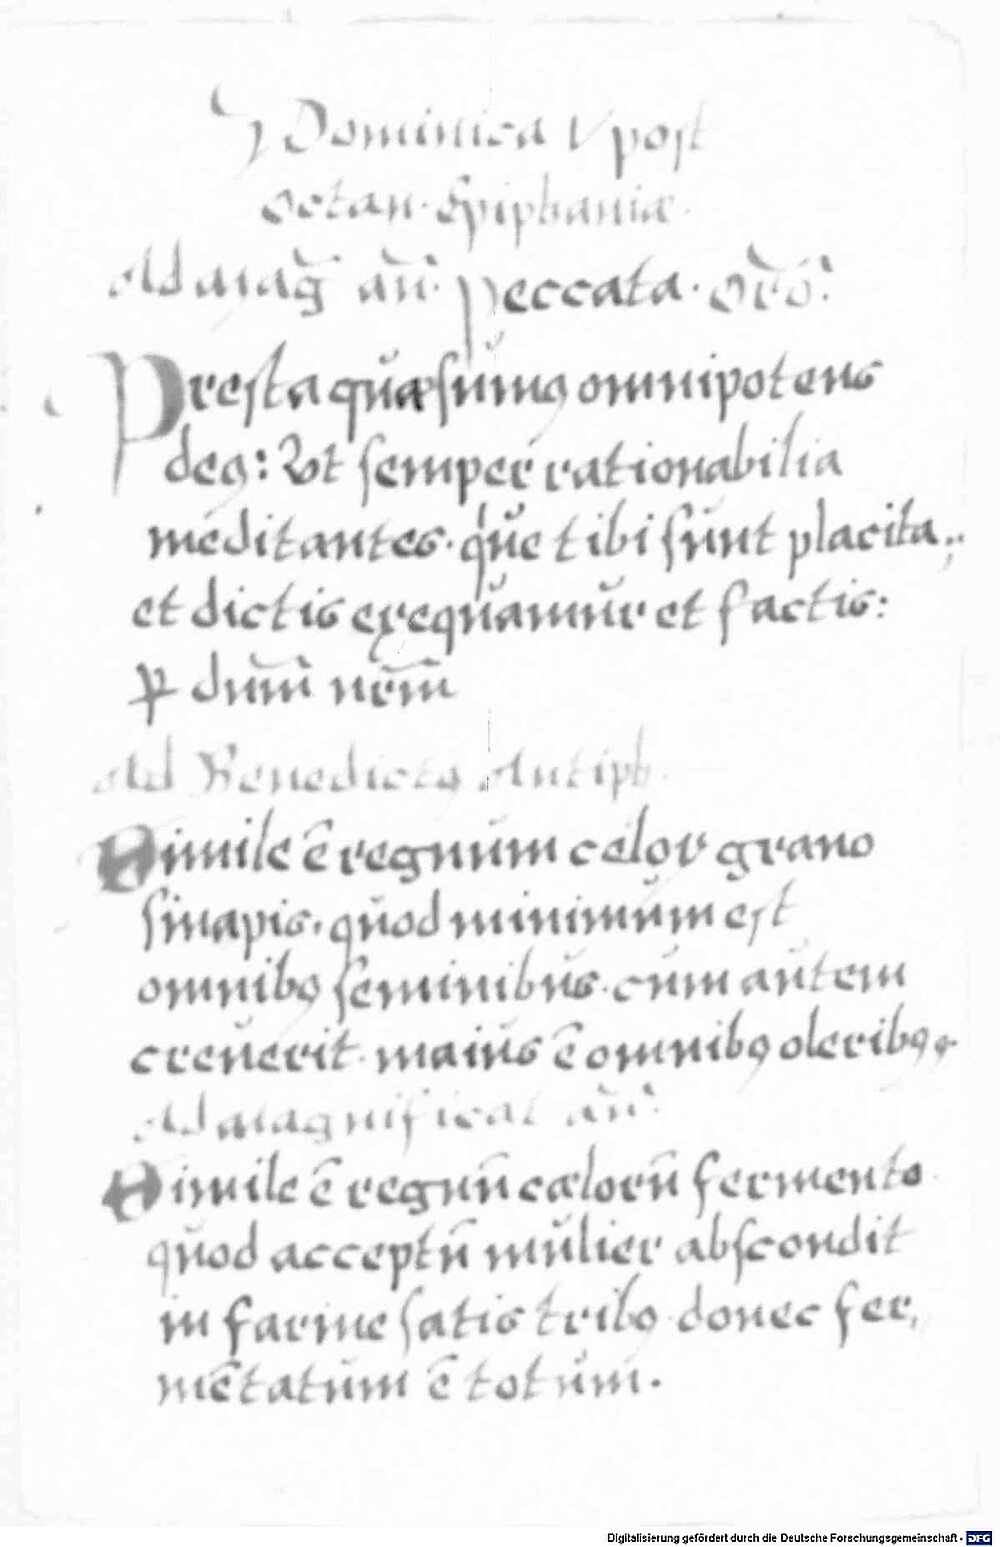 Dominica V post
octau. Epiphaniæ.
Ad Mag̃ añ. Peccata. Orõ.
Presta quæsumꝰ omnipotens
deꝰ: Vt semper rationabilia
meditantes. que tibi sunt placita,
et dictis exequamur et factis:
ꝑ dnm̃ nr̃m
Ad Benedictꝰ Antiph.
Simile ẽ regnum celoꝝ grano
sinapis. quod minimum est
omnibꝰ seminibus. cum autem
creuerit. maius ẽ omnibꝰ oleribꝰ.
Ad Magnificat añ.
Simile ẽ regnũ cælorũ fermento
quod acceptũ mulier abscondit
in farine satis tribꝰ. donec fer,
mẽtatum ẽ totum.
Digitalisierung gefördert durch die Deutsche Forschungsgemeinschaft - DFG